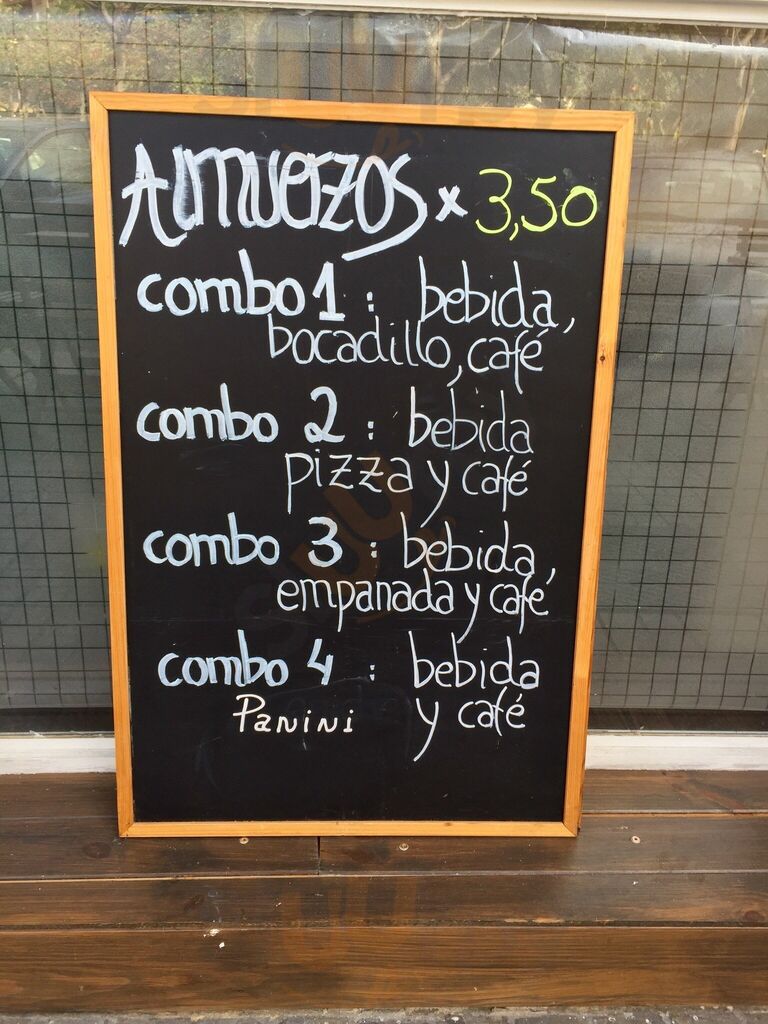 Almuerzos x 3,50
combo 1 : bebida,
bocadillo, café
combo 2 : bebida
pizza y café
combo 3 : bebida,
empanada y café
combo 4 : bebida
Panini y café